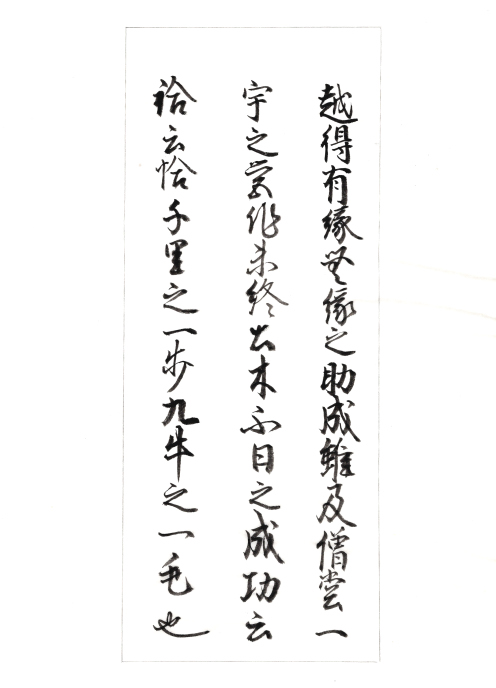 越得有縁無縁之助成雖及僧堂一
宇之営作未終土木不日之成功云
袷云恰千里之一歩九牛之一毛也